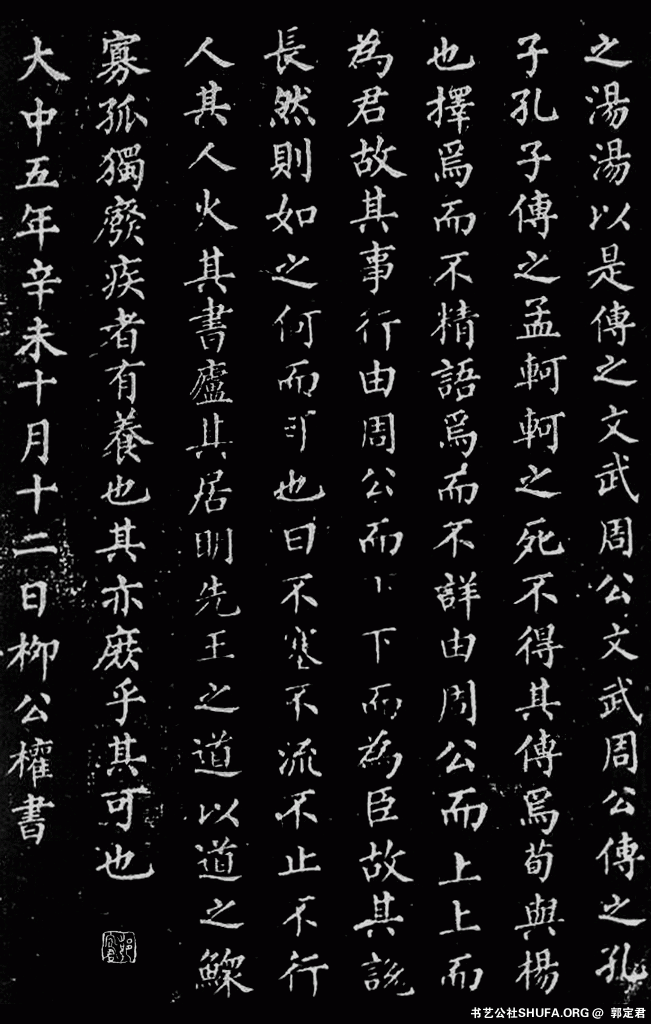 之湯湯以是傳之文武周公文武周公傳之孔
子孔子傳之孟軻軻之死不得其傳焉荀與楊
也擇焉而不精語焉而不詳由周公而上上而
為君故其事行由周公而下下而為臣故其說
長然則如之何而可也曰不塞不流不止不行
人其人火其書廬其居明先王之道以道之鰥
寡孤獨廢疾者有養也其亦庶乎其可也
大中五年辛未十月十二日柳公權書
书艺公社SHUFA.ORG @ 郭定君